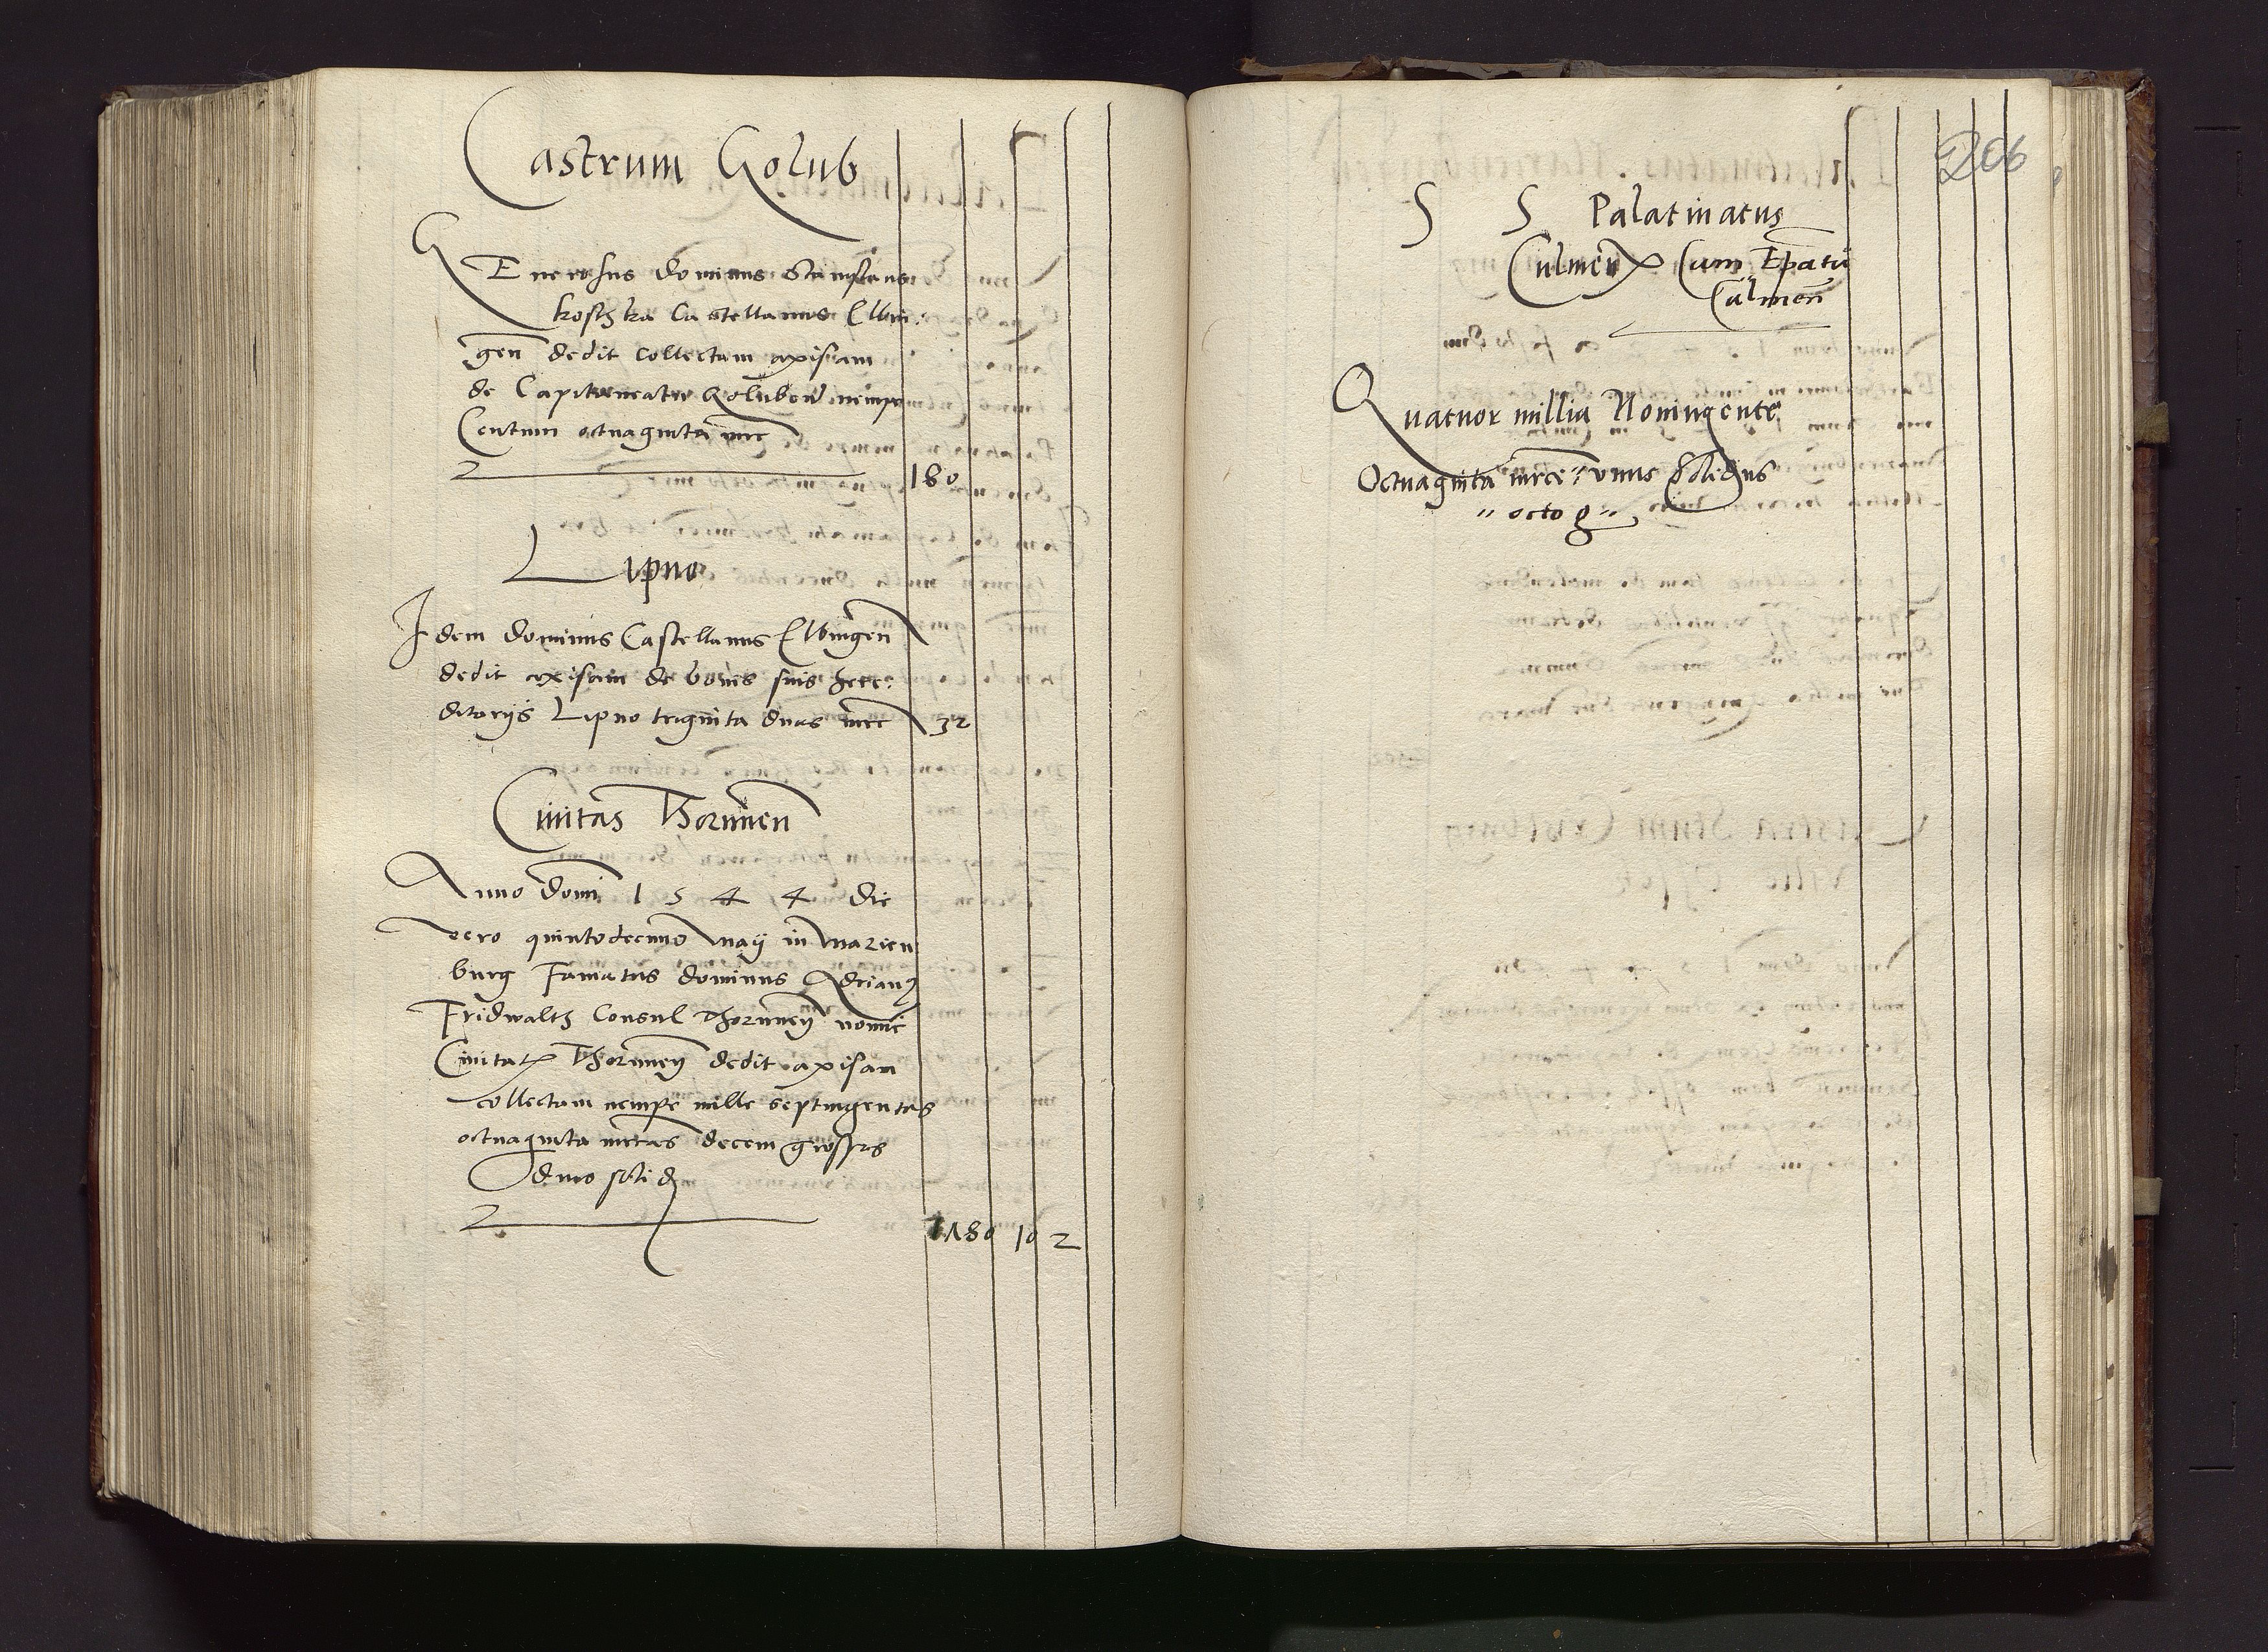 Castrum Golub
Generosus dominus Stanislaus
koschka Castellanus Elbin:
gen̄ dedit collectam axisam
de Capitaneatu Goluben̄ nempe
Centum octuaginta mrc
180
Lipno
Idem dominus Castellanus Elbingen̄
dedit axisam de bonis suis here:
ditarijs Lipno triginta duas mrc 32
Ciuitas Thorunen̄
Anno domi 1 5 4 4 die
vero quintodecimo Maij in Marien
burg Famatus dominus Adrianꝰ
Fridwaltħ Consul Thorunen̄ nomīe
Ciuitatꝭ Thorunen̄ dedit axisam
collectam nempe mille septingentas
octuaginta mrcas decem grossos
duo solid
1780 10 2
206
S S Palatinatus
Culmen̄ Cum Epatu
Culmen̄
Quatuor millia Noningente
Octuaginta mrce vnus Solidus
octo g